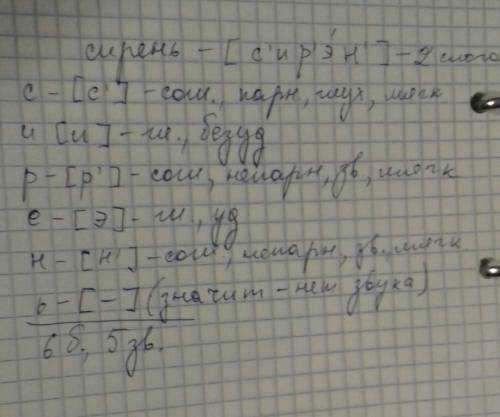 сирень - [с'ир'э́н'] - 2 слога
с - [с'] - согл., парн, глух, мягк
и [и] - гл., безуд
р - [р'] - согл, непарн, зв, мягк
е - [э] - гл., уд
н - [н'] - согл, непарн, зв, мягк
ь - [-] (значит - нет звука)
6 б, 5 зв.